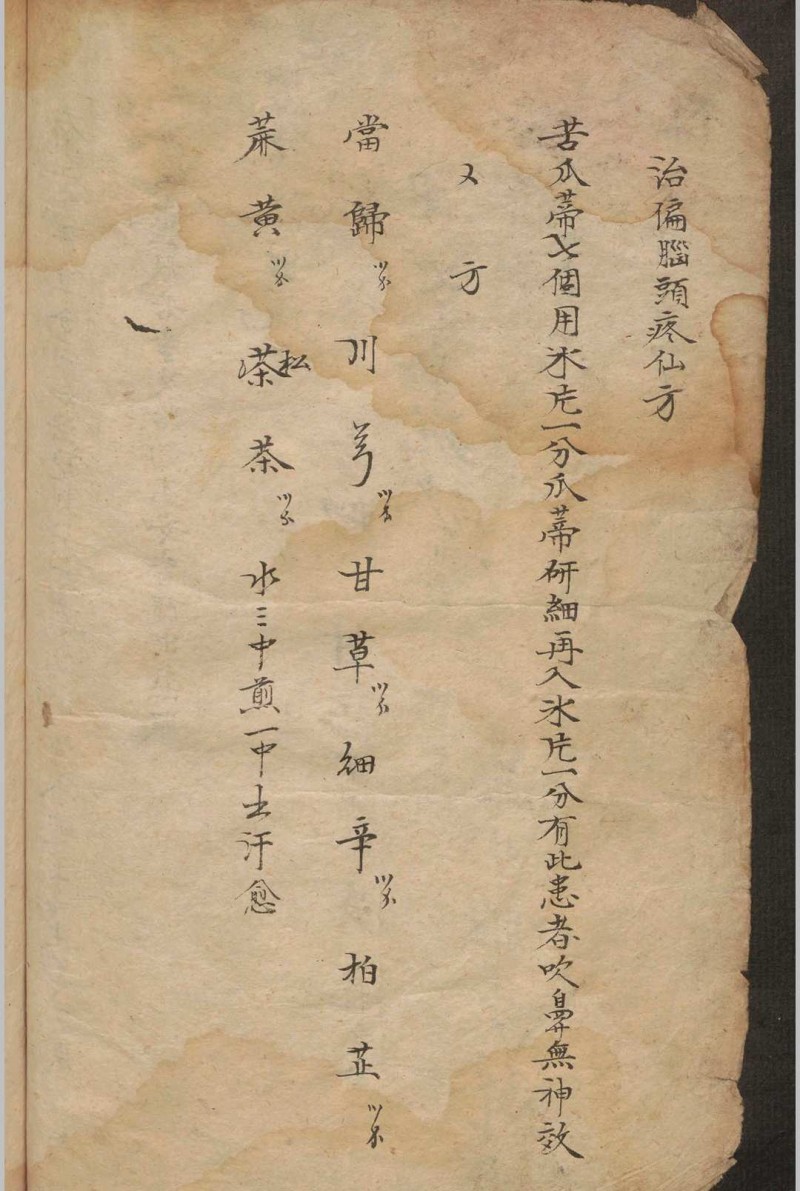 治偏腦頭疼仙方
苦瓜蒂七個用氷片一分瓜蒂研細再入氷片一分有此患者吹鼻無神效
又方
當歸 川芎 甘草 細辛 柏芷
蔴黃 松 茶 水三中煎一中出汗愈